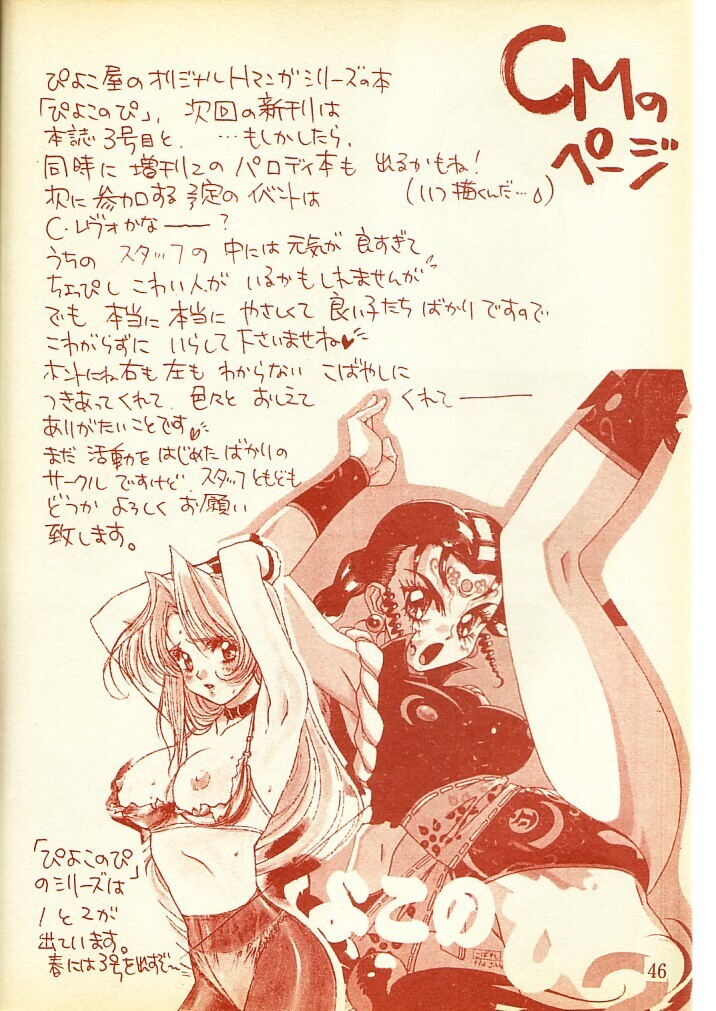 CMの
ページ
ぴよこ屋のオリジナルHマンガシリーズの本
「ぴよこのぴ」、次回の新刊は
本誌3号目と、…もしかしたら、
同時に増刊2のパロディ本も出るかもね！
(いつ描くんだ…)
次に参加する予定のイベントは
C・レヴォかな——？
うちの スタッフの 中には元気が 良すぎて
ちょっぴし こわい人が いるかもしれませんが
でも 本当に 本当に やさしくて 良い子たち ばかりですので
こわがらずに いらして下さいませね♥
ホントにね右も左も わからない こばやしに
つきあってくれて、色々と おしえて くれて——
ありがたいことです♥
まだ 活動を はじめたばかりの
サークルですけど、スタッフともども
どうか よろしく お願い
致します。
「ぴよこのぴ」
のシリーズは
1と2が
出ています。
春には3号を出すぞ〜
ぴよこの
ぴ
46